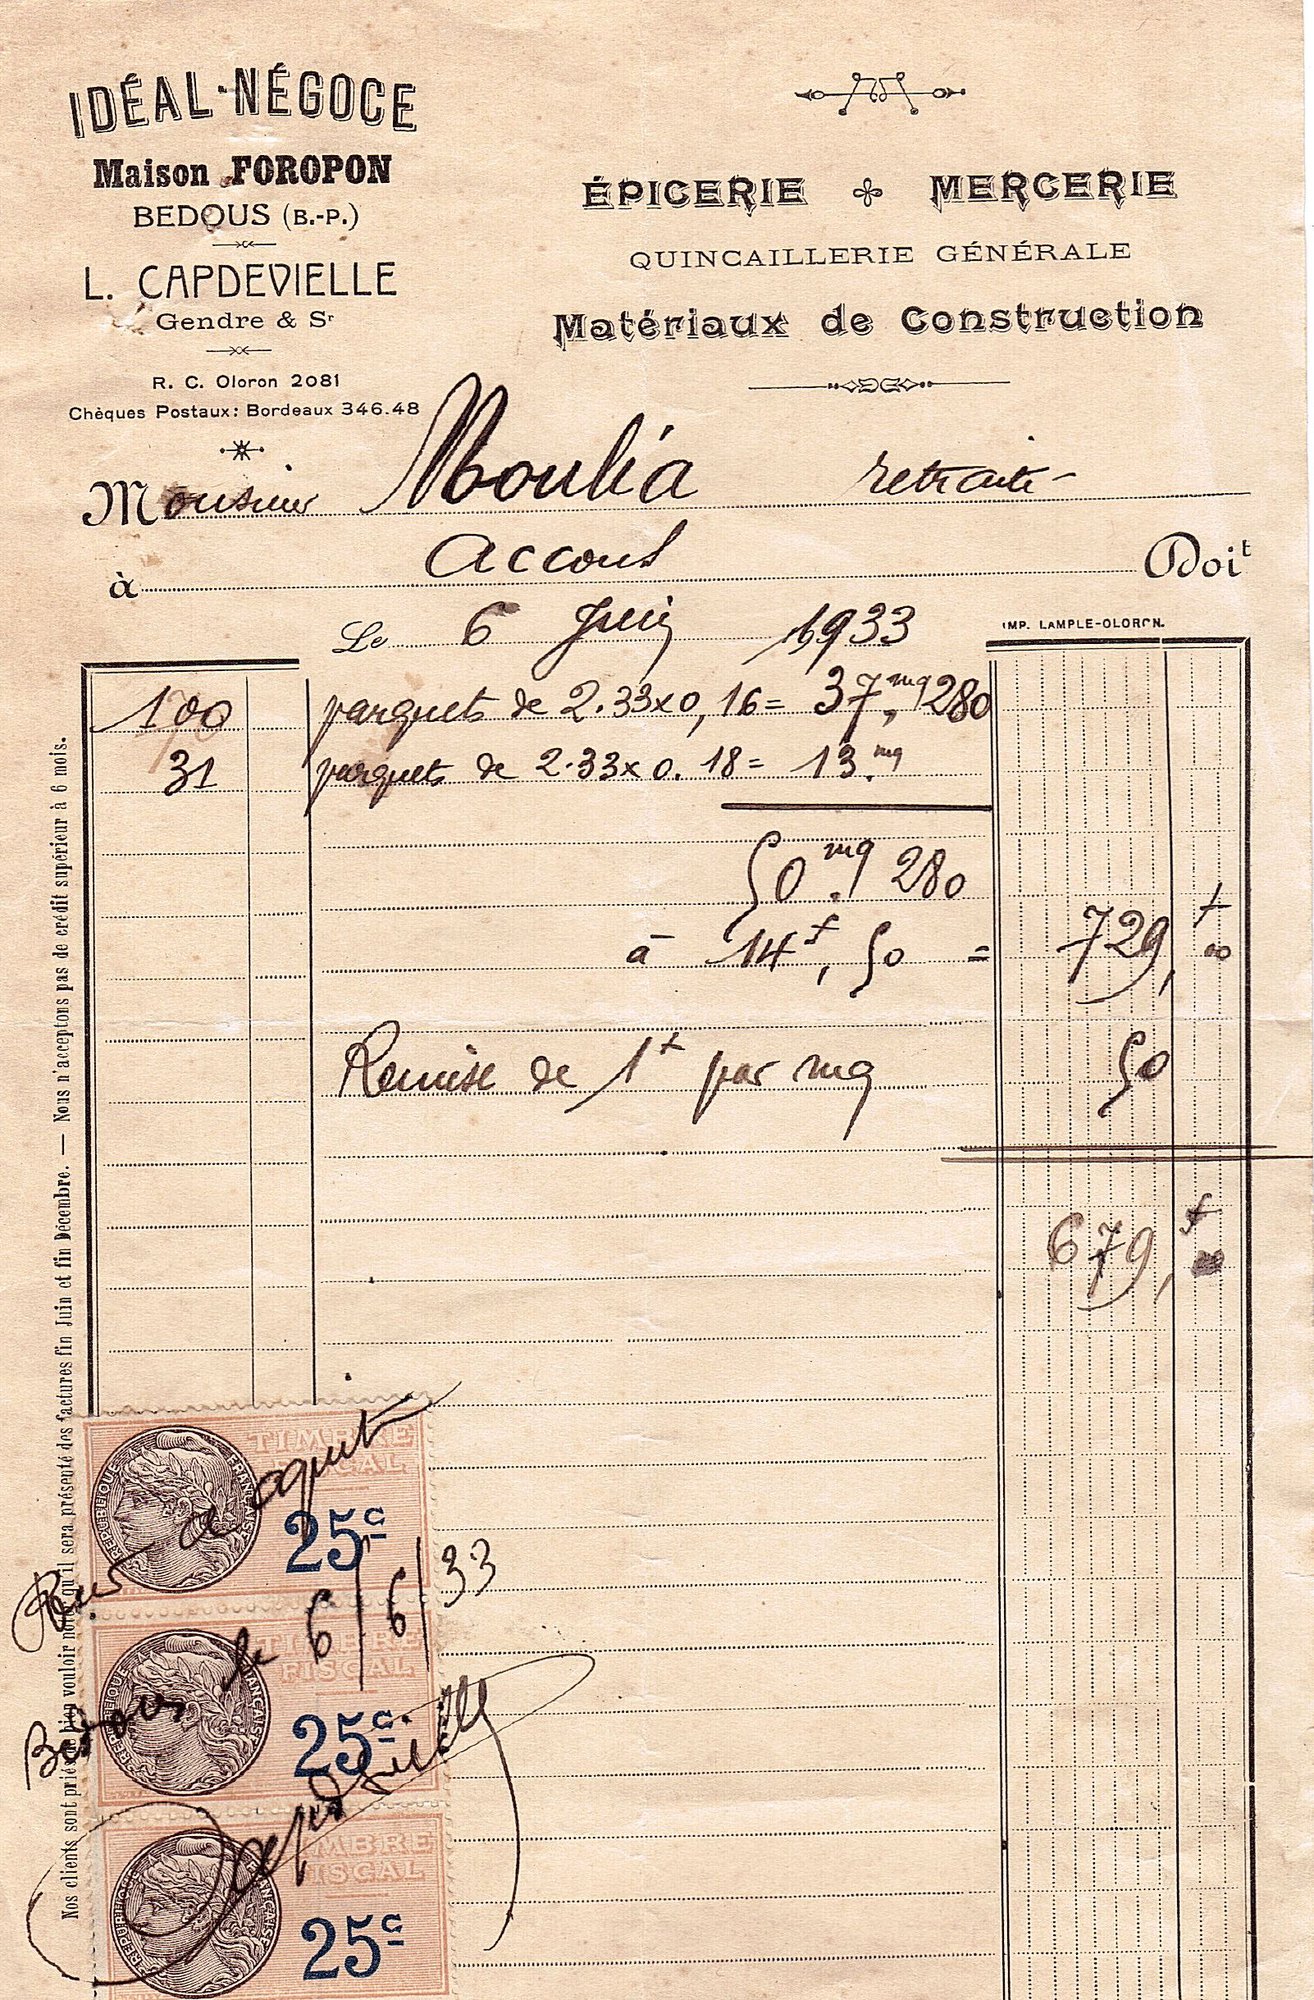 IDÉAL-NÉGOCE
Maison FOROPON
BEDOUS (B.-P.)
L. CAPDEVIELLE
Gendre & Sr
R. C. Oloron 2081
Chèques Postaux: Bordeaux 346.48
ÉPICERIE MERCERIE
QUINCAILLERIE GÉNÉRALE
Matériaux de Construction
Monsieur Moulia retraité
à Accous Doit
Le 6 Juin 1933
IMP. LAMPLE-OLORON.
100 parquets de 2.33x0,16= 37,mq 280
31 parquets de 2.33x0.18= 13.mq
50.mq 280
à 14f,50 = 729,f00
Remise de 1f par mq 50
679,f00
Nos clients sont priés de bien vouloir noter qu'il sera présenté des factures fin Juin et fin Décembre. — Nous n'acceptons pas de crédit supérieur à 6 mois.
TIMBRE
FISCAL
RÉPUBLIQUE FRANÇAISE
25c
Pour acquit
TIMBRE
FISCAL
RÉPUBLIQUE FRANÇAISE
25c
Bedous le 6/6/33
Capdevielle
TIMBRE
FISCAL
RÉPUBLIQUE FRANÇAISE
25c